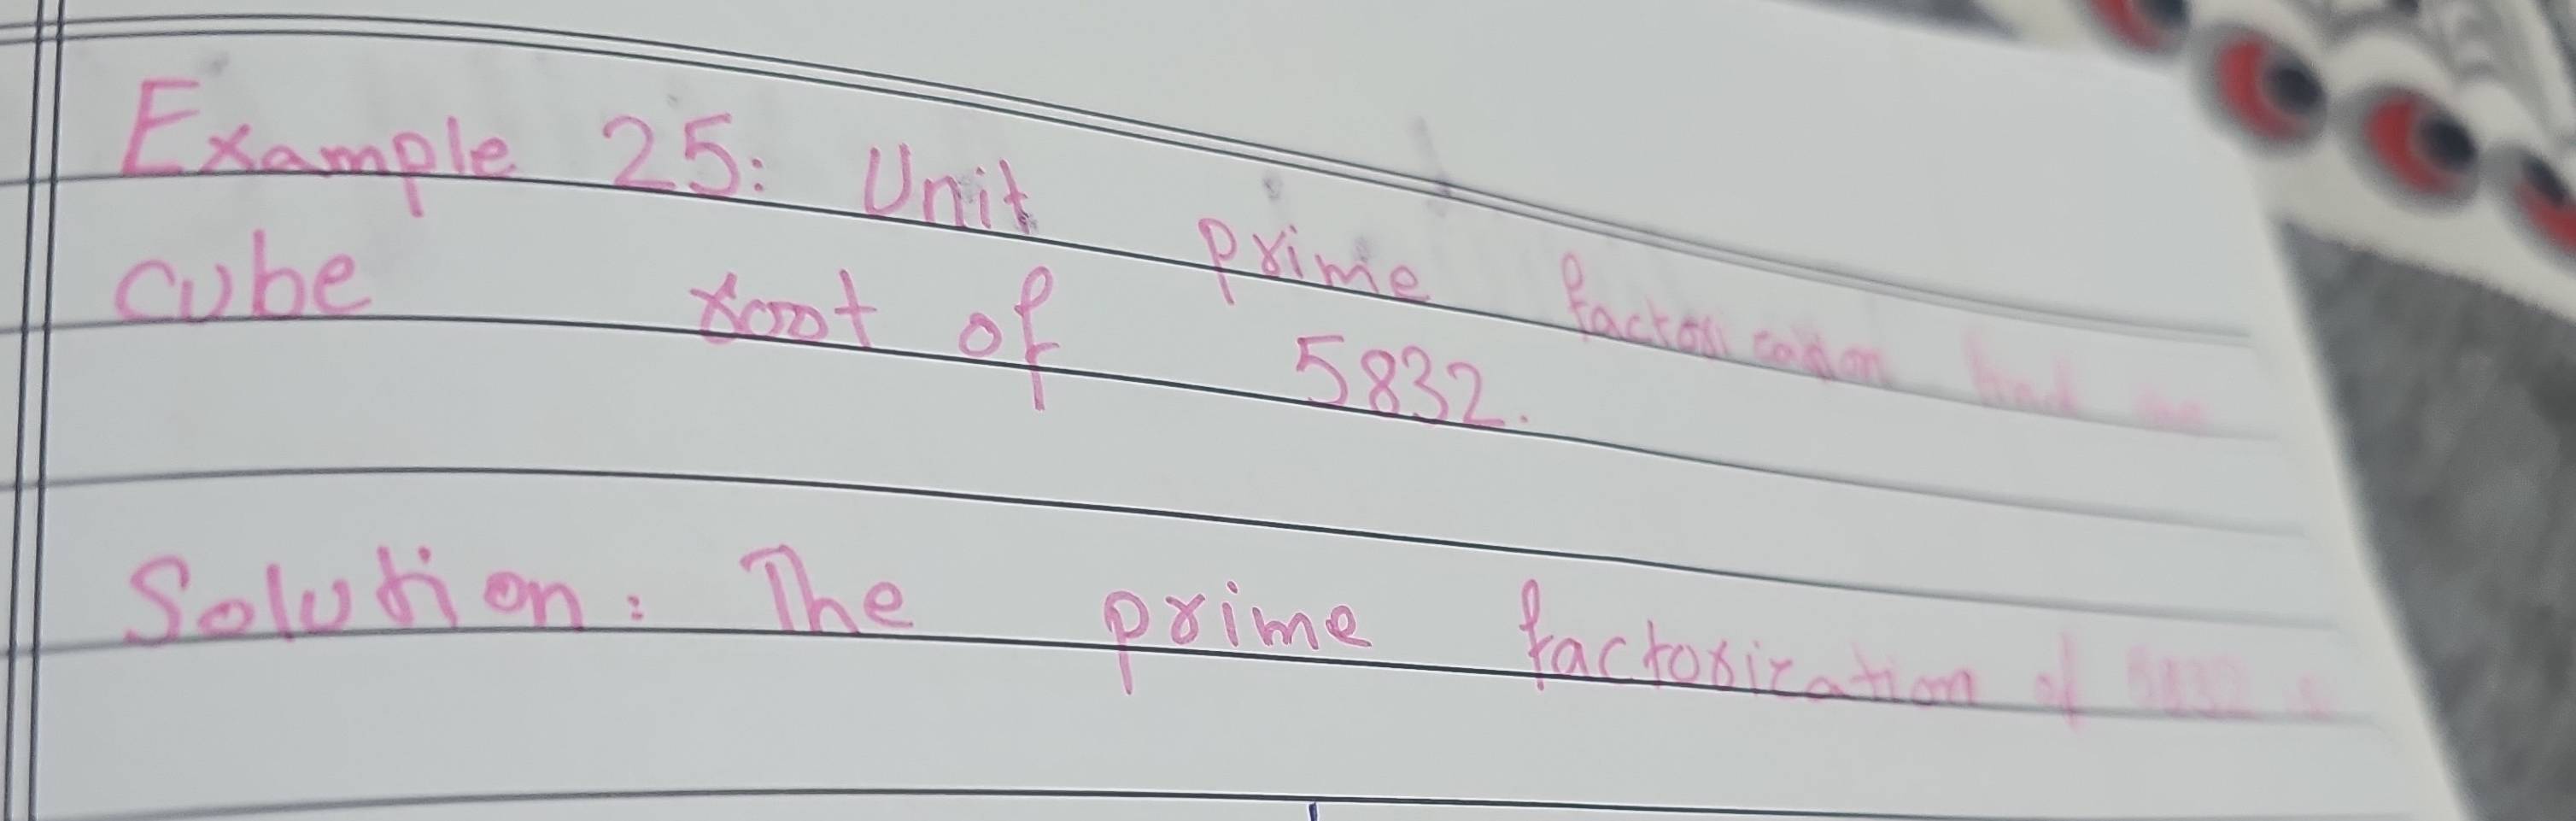 Example 25: Unit prime factorisation find the
cube root of 5832.
Solution: The prime factorization of 5832 is